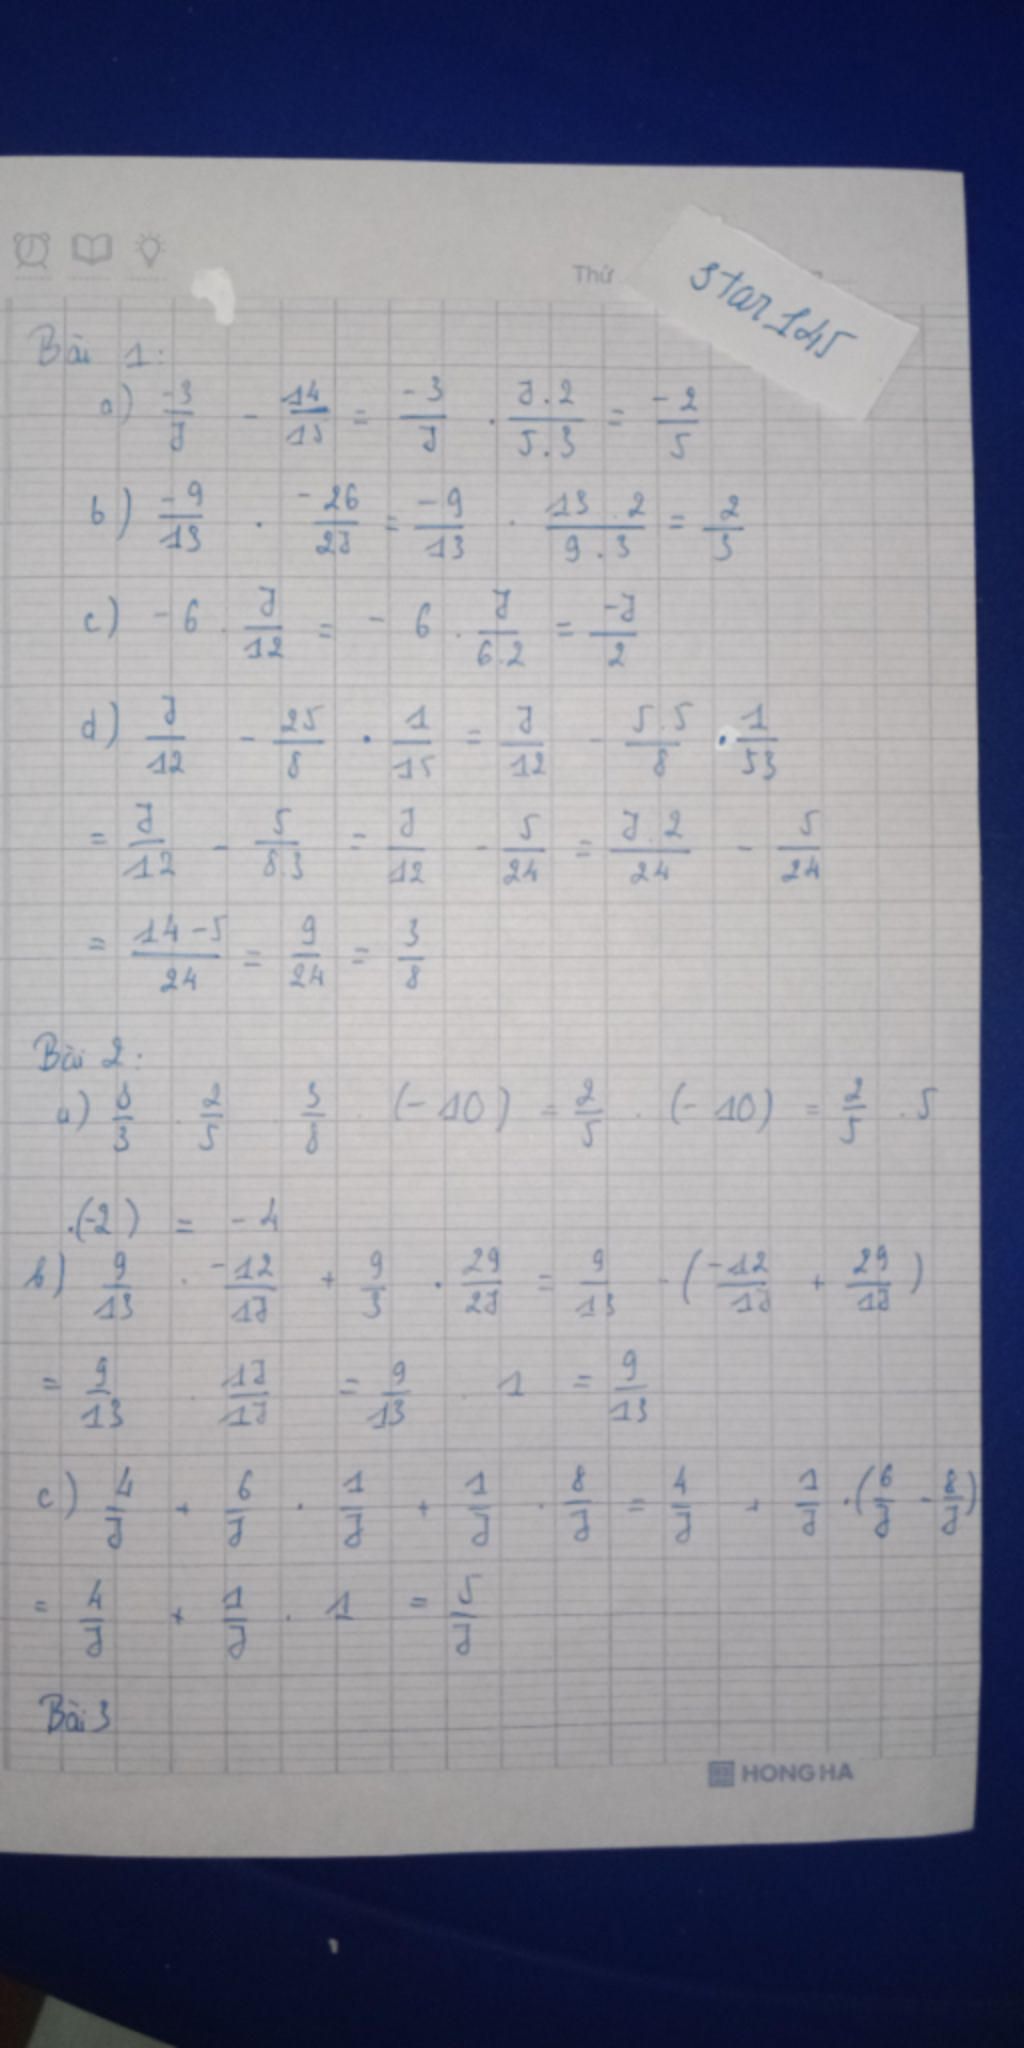 Thứ
star 145
Bài 1:
a) -3/7 - 14/15 = -3/7 . 7.2/5.3 = -2/5
b) -9/13 . -26/27 = -9/13 . 13.2/9.3 = 2/3
c) -6 . 7/12 = -6 . 7/6.2 = -7/2
d) 7/12 - 25/8 . 1/15 = 7/12 - 5.5/8 . 1/53
= 7/12 - 5/8.3 = 7/12 - 5/24 = 7.2/24 - 5/24
= 14-5/24 = 9/24 = 3/8
Bài 2:
a) 8/3 . 2/5 . 3/8 . (-10) = 2/5 . (-10) = 2/5 . 5
.(-2) = -4
b) 9/13 . -12/17 + 9/3 . 29/27 = 9/13 - (-12/17 + 29/17)
= 9/13 . 17/17 = 9/13 . 1 = 9/13
c) 4/7 + 6/7 . 1/7 + 1/7 . 8/7 = 4/7 + 1/7 . (6/7 - 8/7)
= 4/7 + 1/7 . 1 = 5/7
Bài 3
HONG HA